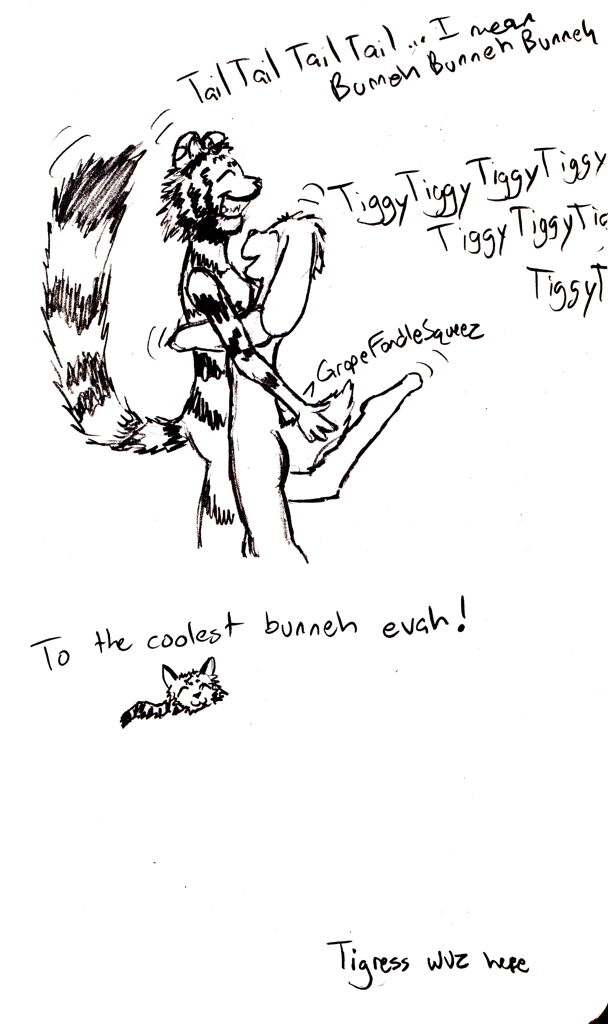 Tail Tail Tail Tail ... I mean
Bunneh Bunneh Bunneh
TiggyTiggyTiggyTiggy
TiggyTiggyTig
TiggyT
GropeFondleSqueez
To the coolest bunneh evah!
Tigress wuz here